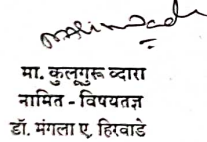 मा. कुलगुरू व्दारा
नामित - विषयतज्ञ
डॉ. मंगला ए. हिरवाडे